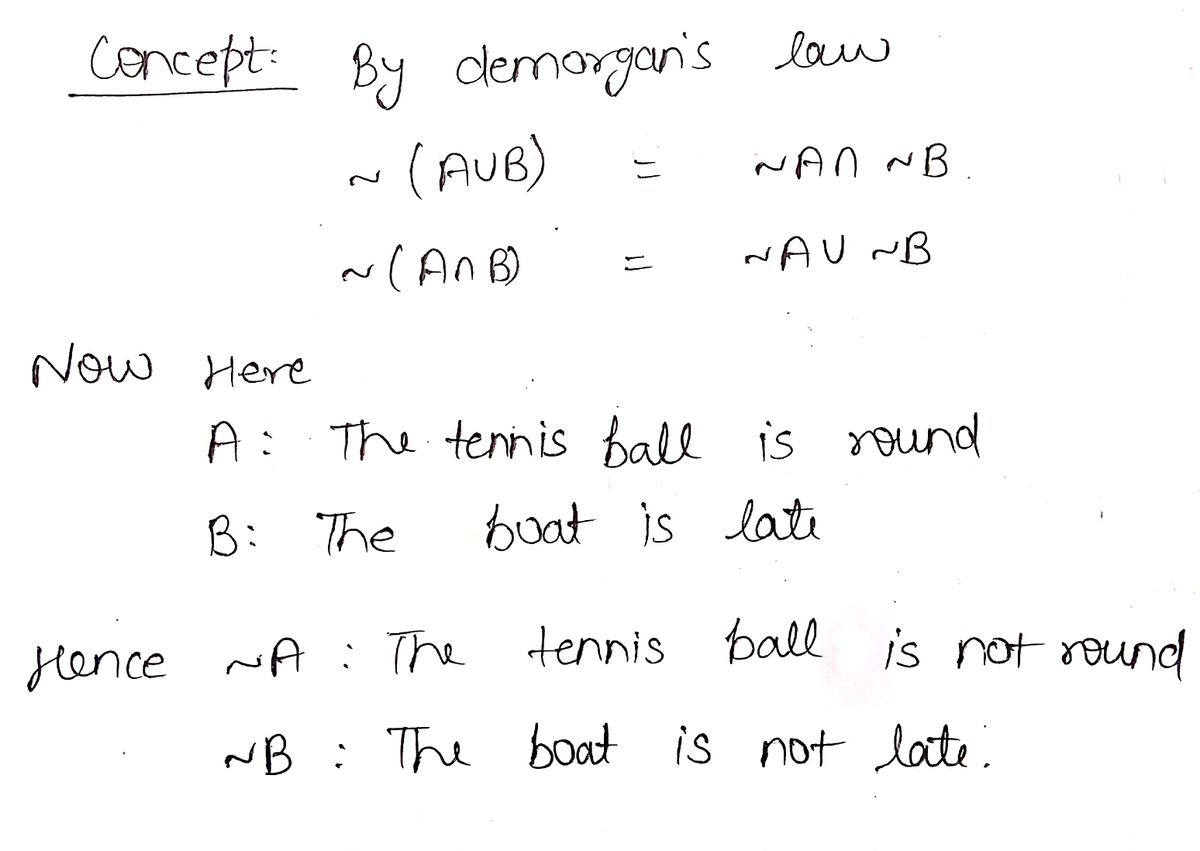 Concept: By demorgan's law
~ (A∪B) = ~A∩ ~B.
~(A∩B) = ~A∪ ~B
Now Here
A: The tennis ball is round
B: The boat is late
Hence ~A : The tennis ball is not round
~B : The boat is not late.